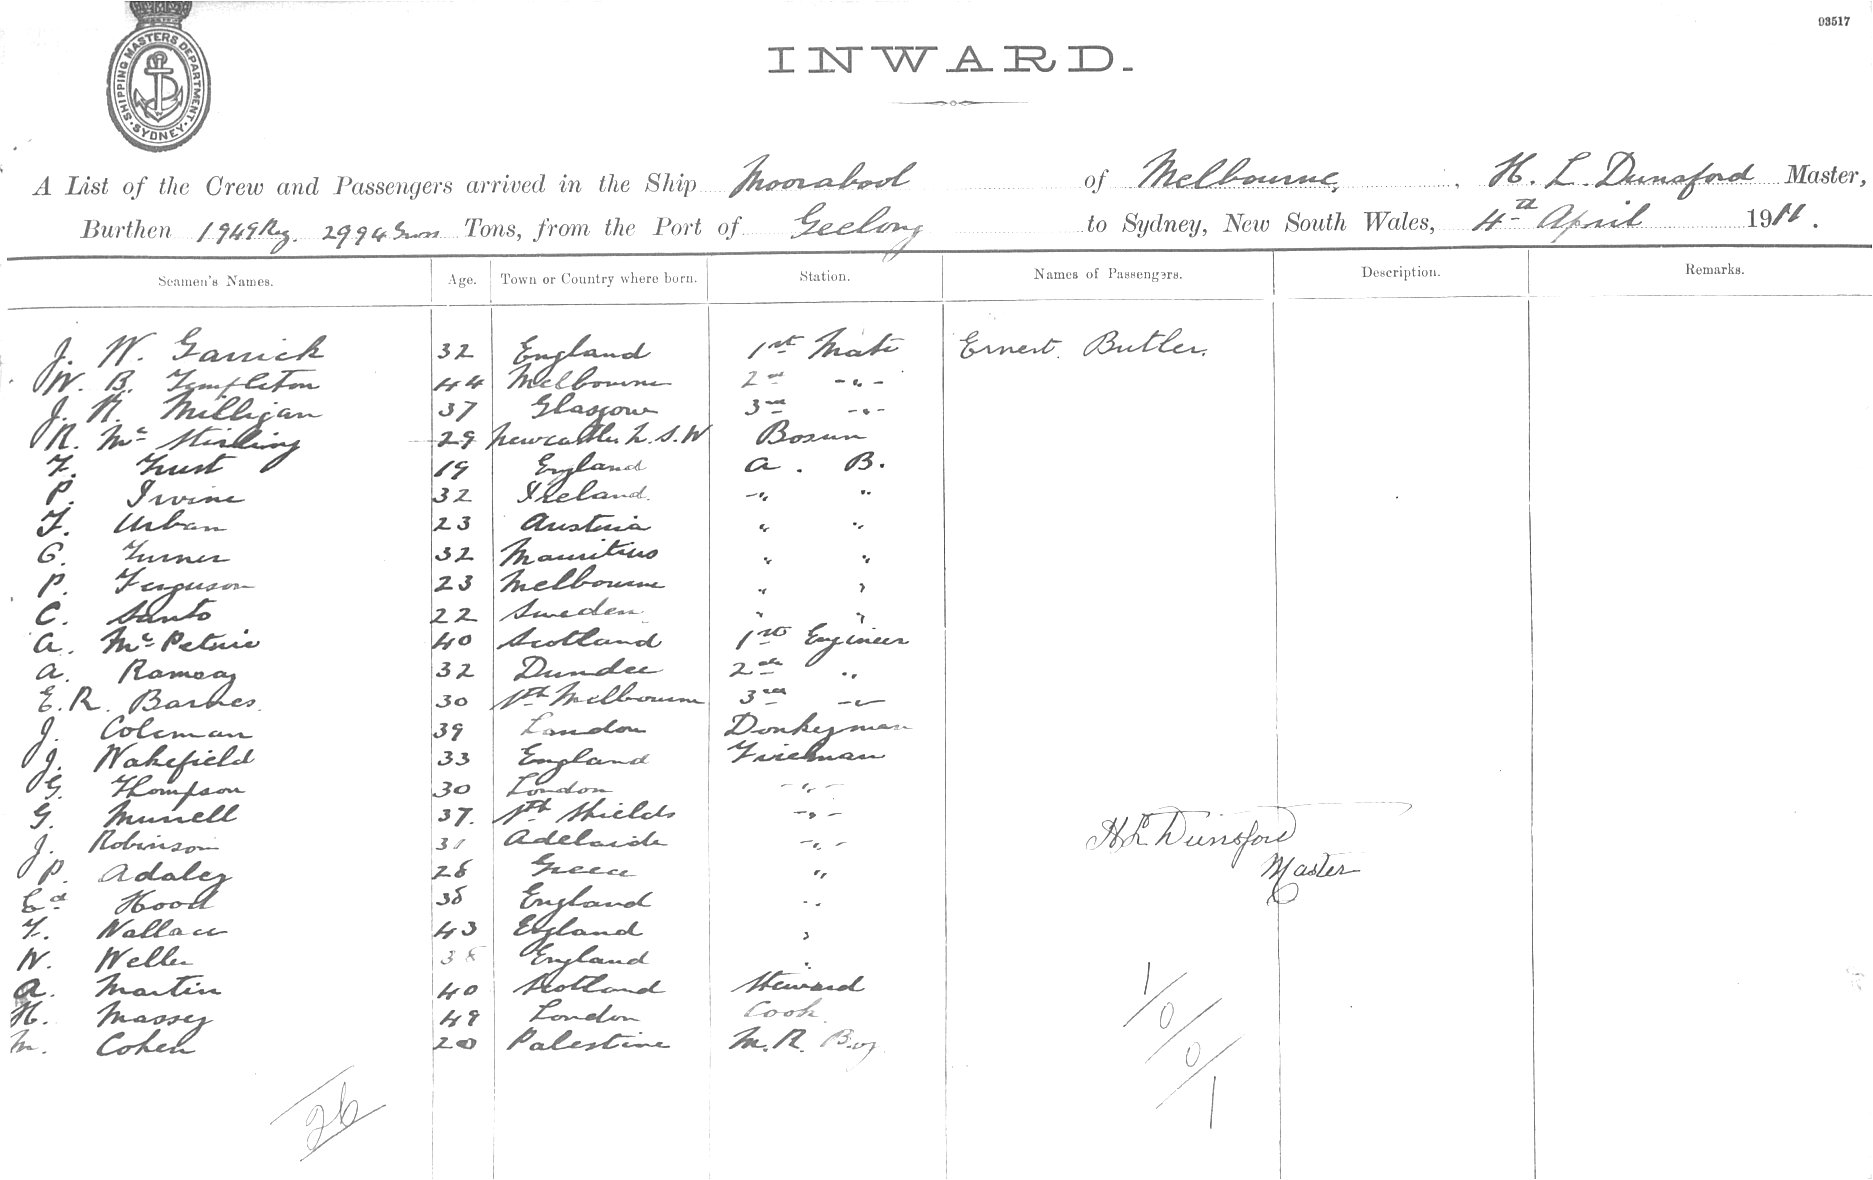 93517
SHIPPING MASTERS DEPARTMENT
· SYDNEY ·
INWARD.
A List of the Crew and Passengers arrived in the Ship Moorabool of Melbourne, H. L. Dunsford Master,
Burthen 1949 Reg. 2994 Gross Tons, from the Port of Geelong to Sydney, New South Wales, 4th April 1911.
Seamen's Names. Age. Town or Country where born. Station. Names of Passengers. Description. Remarks.
J. W. Garrick 32 England 1st Mate Ernest Butler.
W. B. Templeton 44 Melbourne 2nd -"-
J. H. Milligan 37 Glasgow 3rd -"-
R. Mc Stirling 29 Newcastle N.S.W Bosun
F. Trust 19 England A. B.
P. Irvine 32 Ireland. -" "
F. Urban 23 Austria " "
G. Turner 32 Mauritius " "
P. Ferguson 23 Melbourne " "
C. Santo 22 Sweden. " "
A. Mc Petrie 40 Scotland 1st Engineer
A. Ramsay 32 Dundee 2nd "
E. R. Barnes. 30 Nth Melbourne 3rd -"-
J. Coleman 39 London Donkeyman
J. Wakefield 33 England Fireman
G. Thompson 30 London -"-
G. Murrell 37. Nth Shields -"-
J. Robinson 31 Adelaide -"-
P. Adaley 28 Greece "
Ed Hood 38 England "
F. Wallace 43 England "
W. Weller 38 England "
A. Martin 40 Scotland Steward
H. Massey 49 London Cook.
M. Cohen 20 Palestine M. R. Boy.
H L Dunsford
Master
26
1/0/0/1